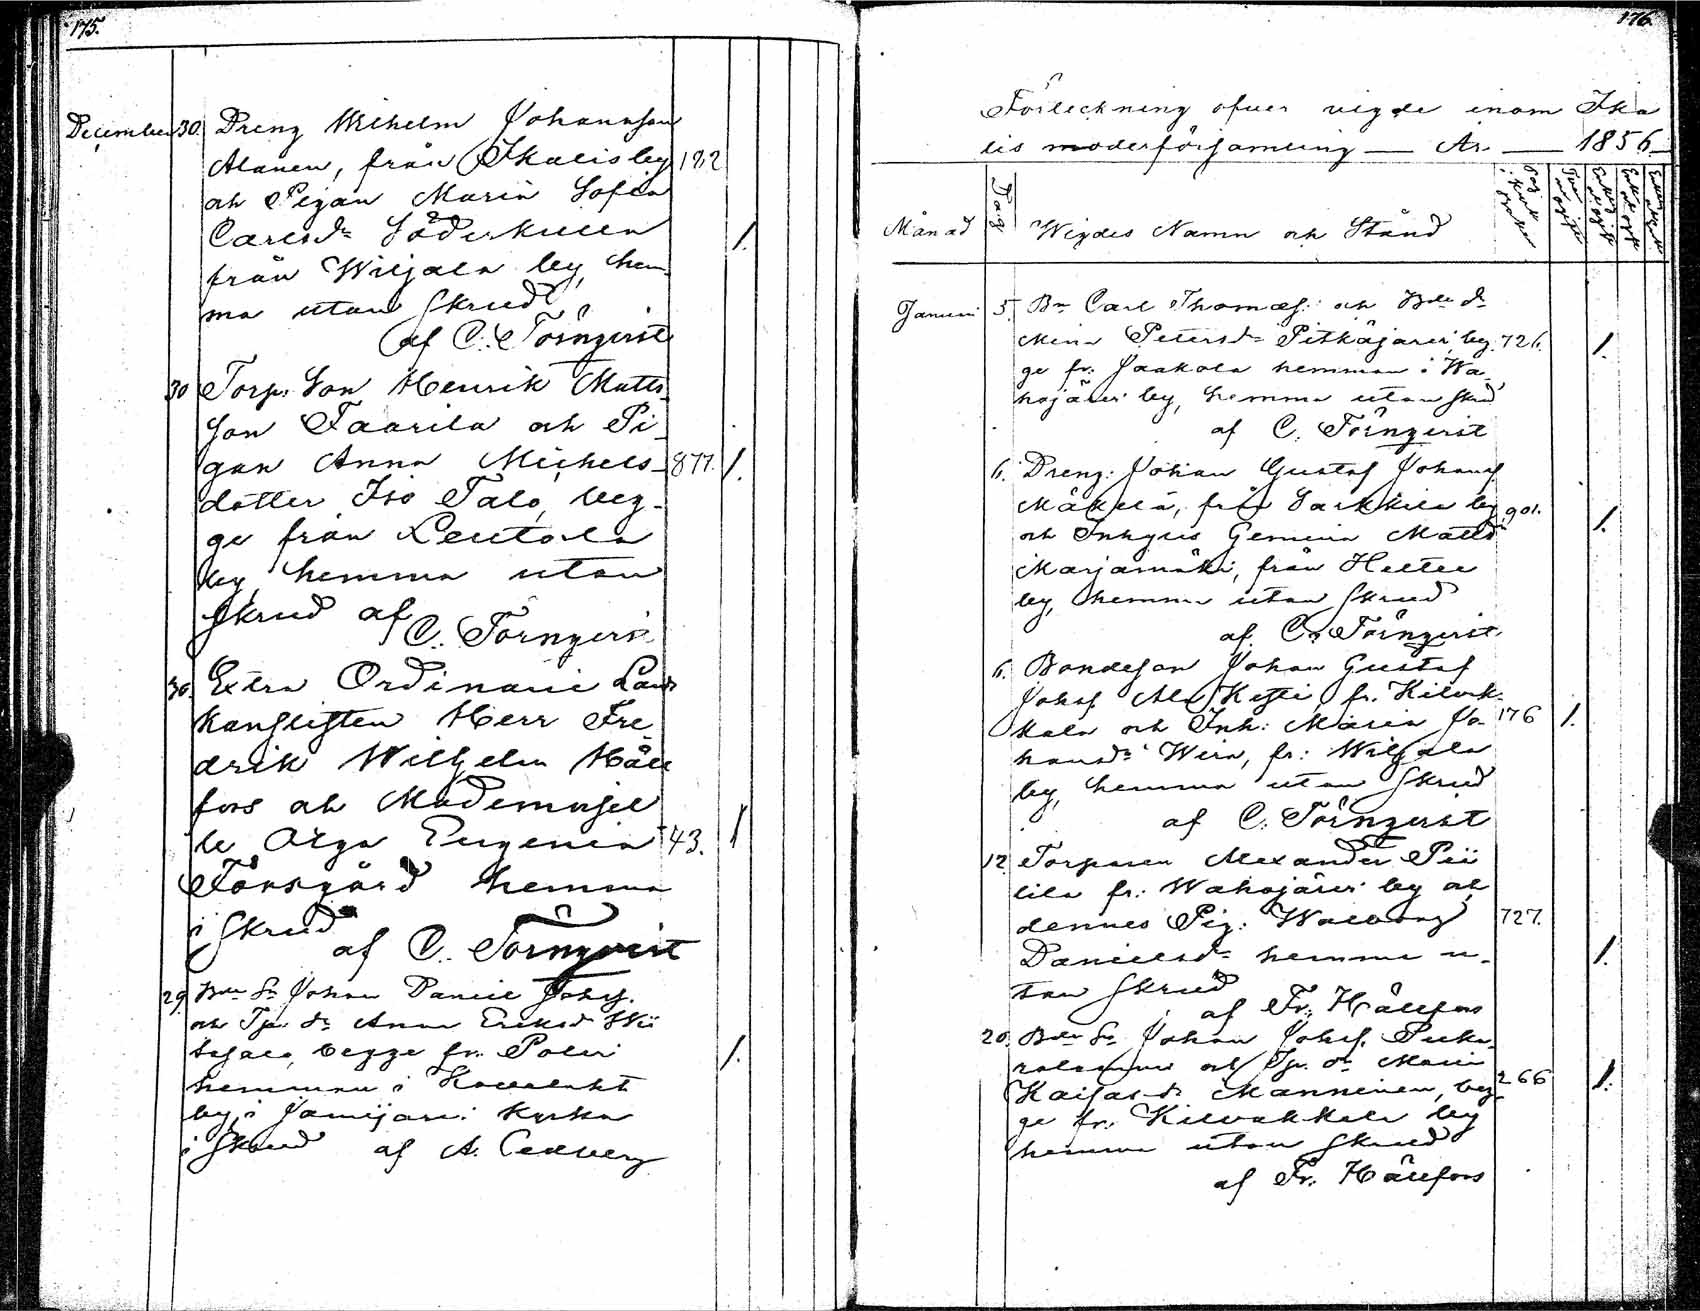 175.
December 30. Dreng Wilhelm Johansson
Alanen, från Ikalis by 122
och Pigan Maria Sofia
Carlsdr Söderkulla
från Wiljala by, hem- 1.
ma utan skrud
af C. Törnqvist
30 Torp. Son Henrik Matts-
son Taarila och Pi-
gan Anna Michels- 877. 1.
dotter Iso Talo, beg-
ge från Leutola
by, hemma utan
skrud af
C. Törnqvis
30. Extra Ordinarie Lands
kanslisten Herr Fre-
drik Wilhelm Häll
fors och Mademoisel
le Olga Eugenia 43. 1
Forsgård hemma
i skrud
af C. Törnqvist
29. Bde Sn Johan Daniel Johss.
och Tp. dr Anna Eriksd
begge fr. Poleri 1.
hemman i
by, i Jämijärvi kyrka
i skrud af A. Cedberg
176.
Förteckning öfver vigde inom Ika
lis moderförsamling — År — 1856.
Månad Dag Wigdes Namn och Stånd
Januari 5. Bn Carl Thomass. och Bde dr
Mina Petersdr Pitkäjärvi, beg 726. 1.
ge fr. Jaakola hemman i Wa-
hojärvi by, hemma utan skrud
af C. Törnqvist
6. Dreng: Johan Gustaf Johanss
Mäkelä, från Sarkkila by 901.
och Inhyses Gemina Mattsd 1.
Marjamäki, från Heittee
by, hemma utan skrud
af C. Törnqvist
6. Bondeson Johan Gustaf
Johss Ala Kesti, fr. Kilvak-
kala och Inh: Maria Jo- 176 1.
hansdr Wira, fr: Wiljala
by, hemma utan skrud
af C. Törnqvist
12 Torparen Alexander Pii
lila fr: Wahojärvi by och
dennes Pig: Walborg 727.
Danielsdr hemma u- 1.
tan skrud
af Fr. Hällfors
20. Bde Sn Johan Johss.
och Tp. dr Maria
Kaisasdr Manninen, beg- 266 1.
ge fr. Kilvakkala by
hemma utan skrud
af Fr. Hällfors